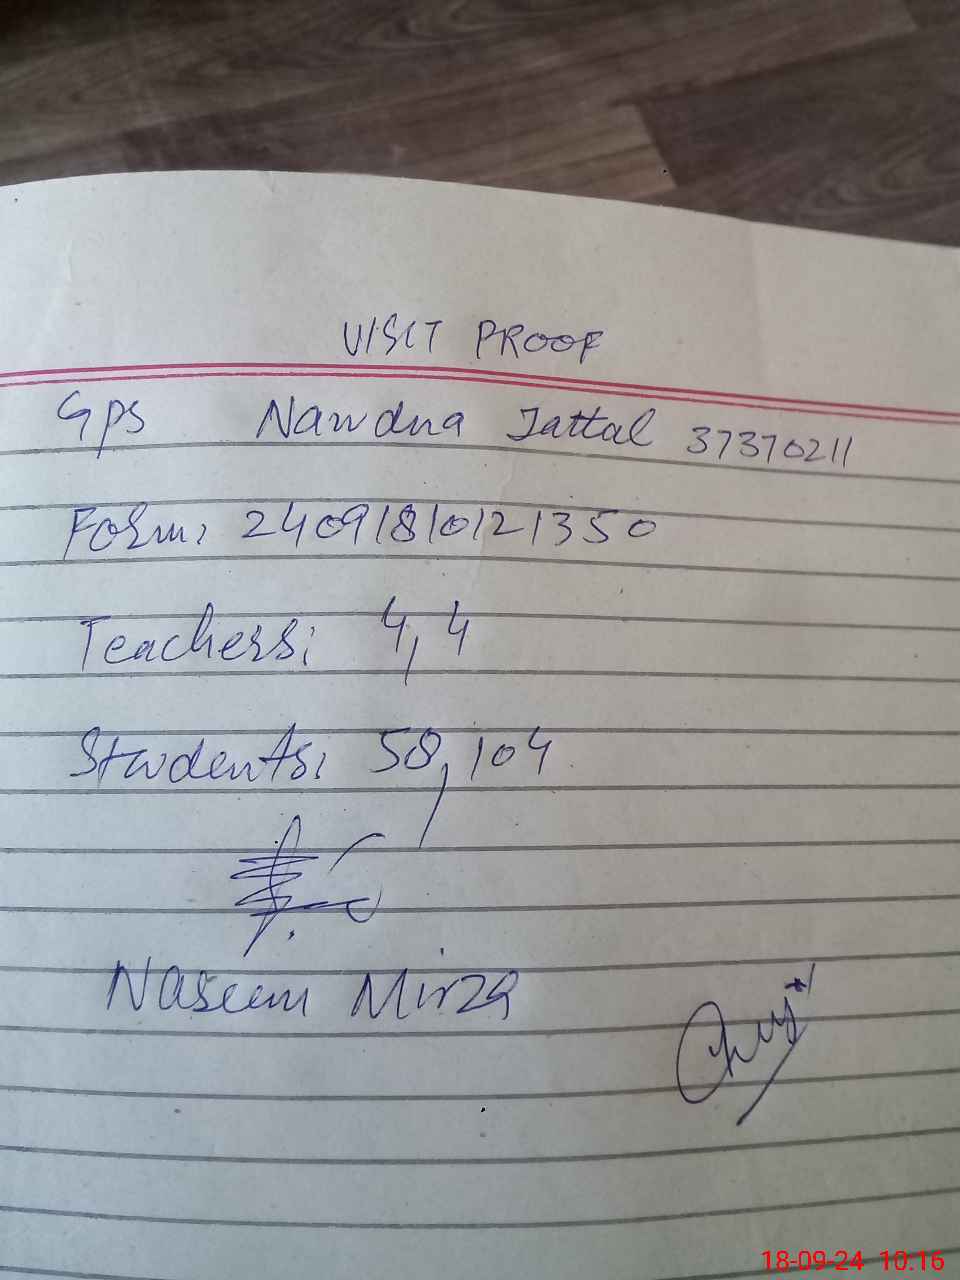 VISIT PROOF
Gps Nawdna Jattal 37370211
Form: 24091810121350
Teachers: 4, 4
Students: 58, 104
Naseem Mirza
18-09-24 10.16